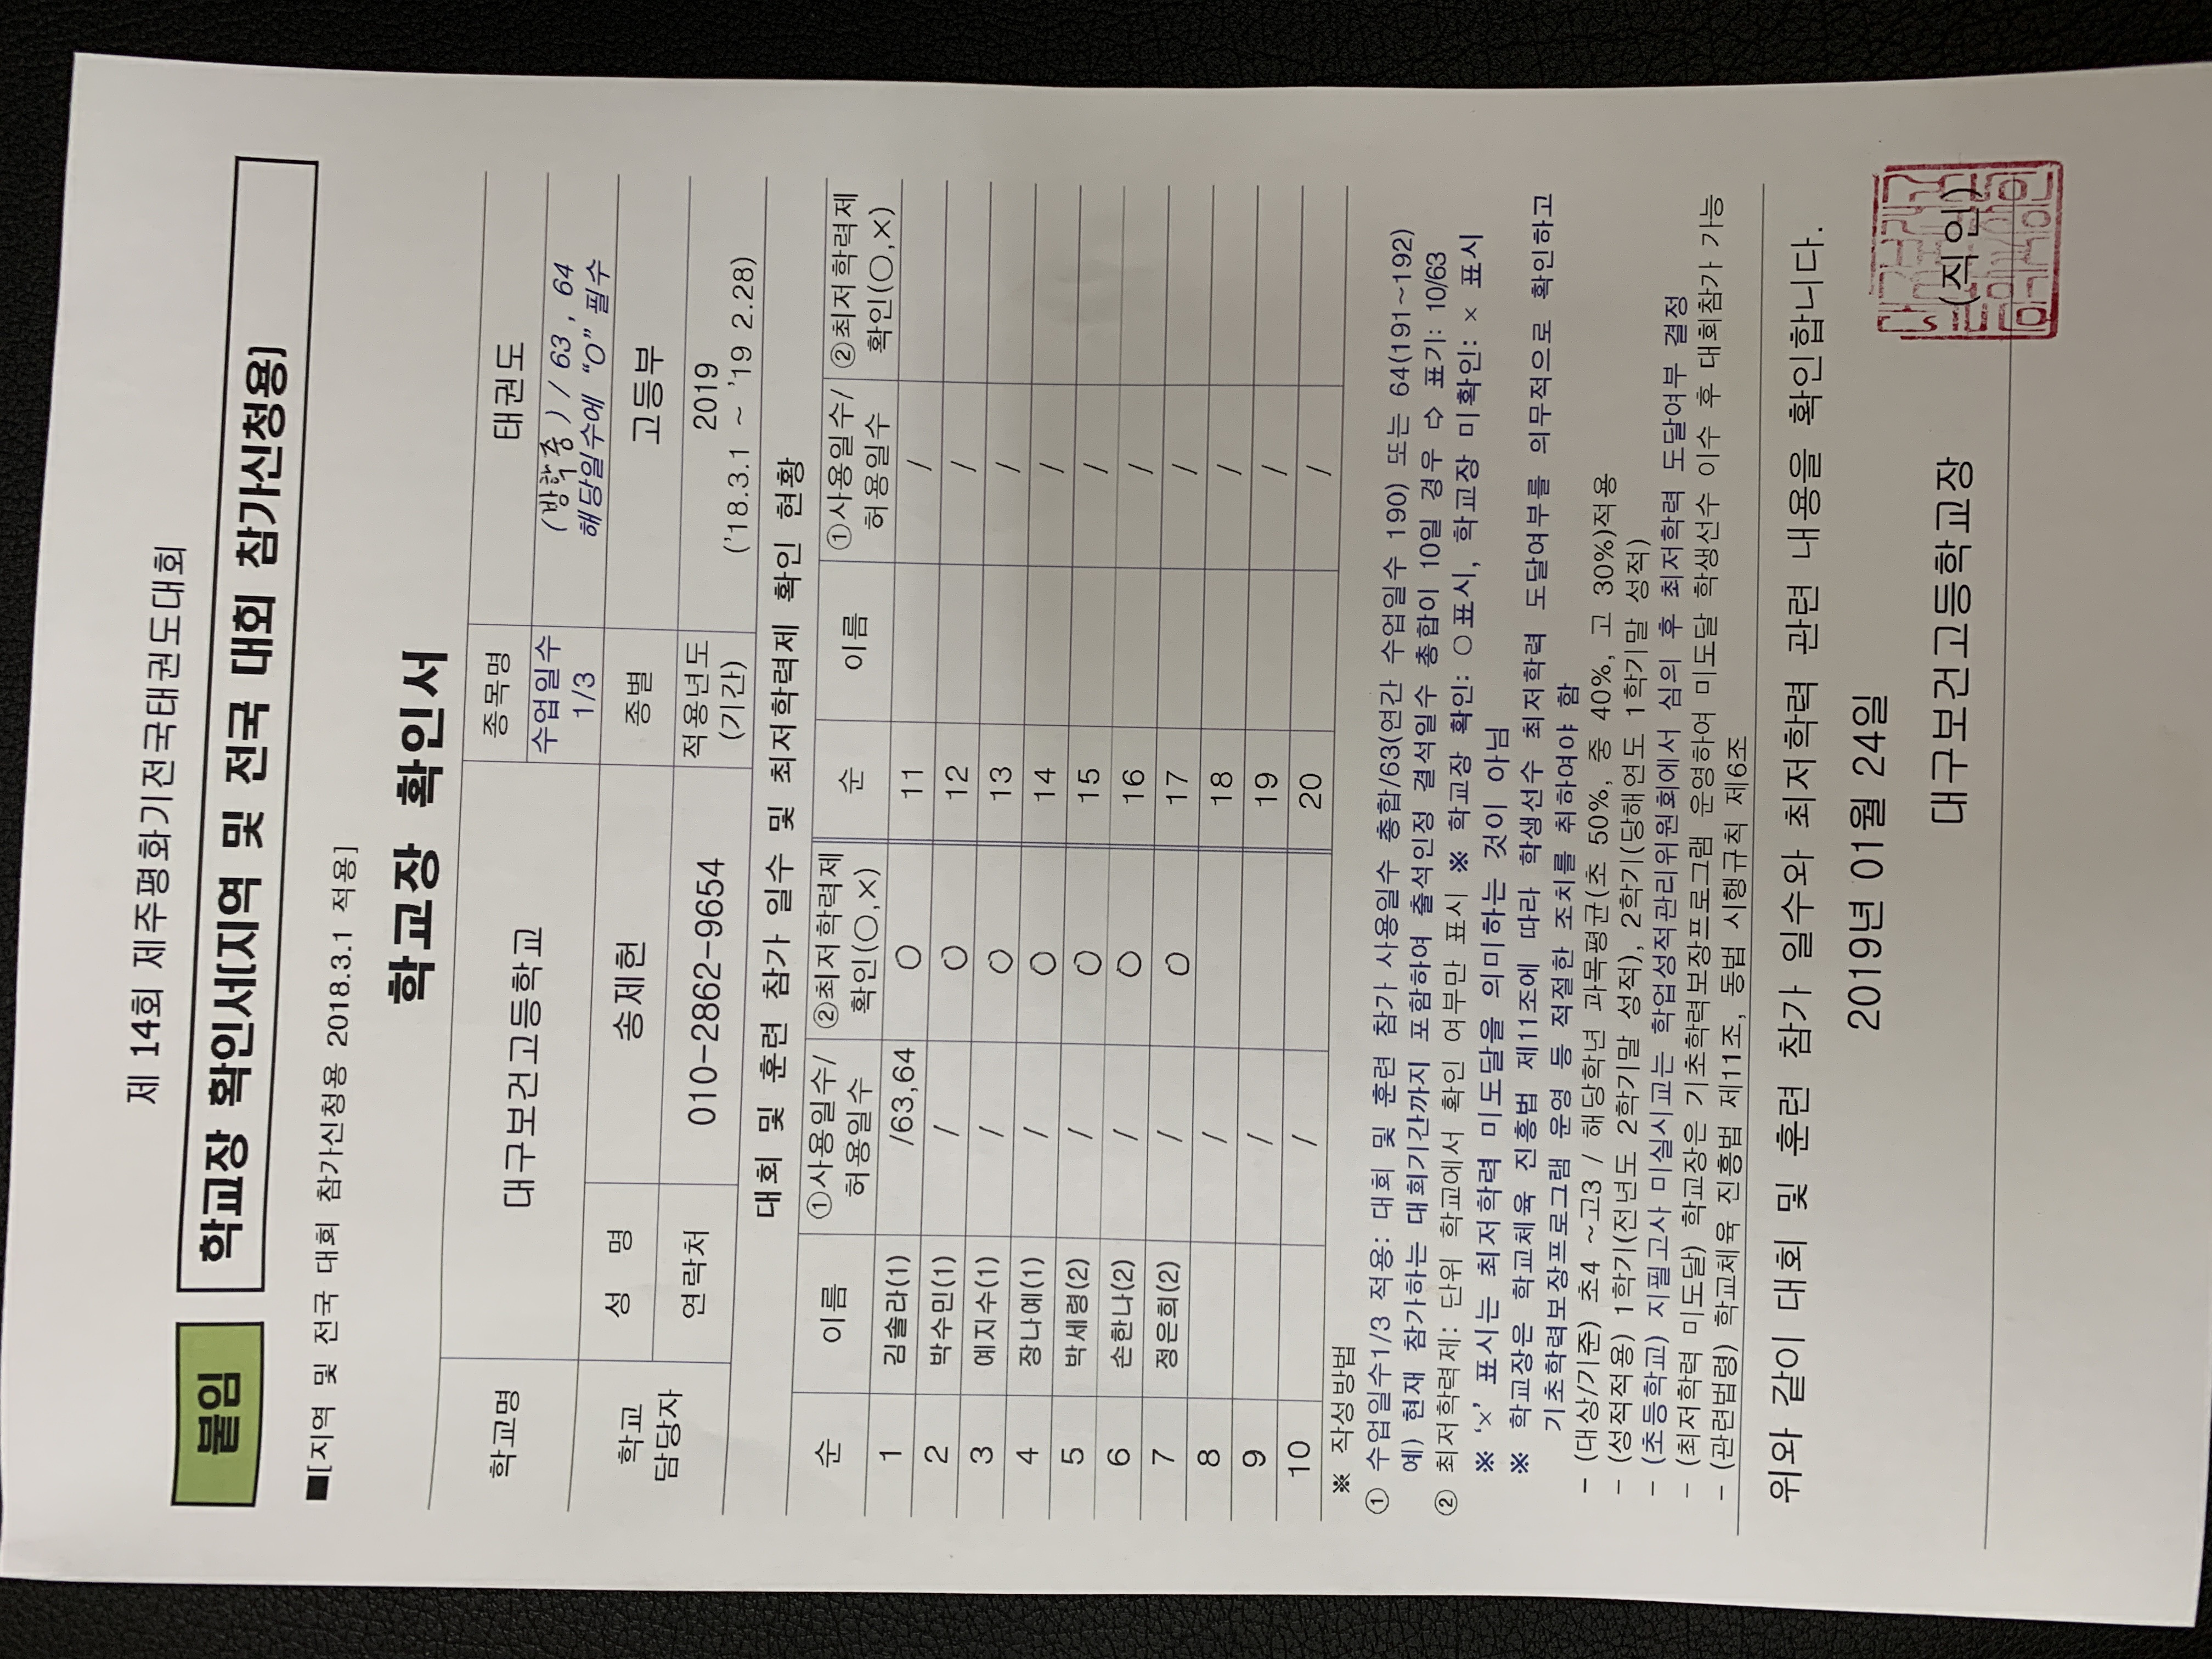 제 14회 제주평화기전국태권도대회
붙임 학교장 확인서[지역 및 전국 대회 참가신청용]
■[지역 및 전국 대회 참가신청용 2018.3.1 적용]
학교장 확인서
학교명 대구보건고등학교 종목명 태권도
수업일수 1/3 (방학중) / 63 , 64
해당일수에 “O” 필수
학교 담당자 성 명 송제헌 종별 고등부
연락처 010-2862-9654 적용년도 (기간) 2019
('18.3.1 ~ '19 2.28)
대회 및 훈련 참가 일수 및 최저학력제 확인 현황
순 이름 ①사용일수/허용일수 ②최저학력제 확인(○,×) 순 이름 ①사용일수/허용일수 ②최저학력제 확인(○,×)
1 김솔라(1) /63,64 ○ 11 /
2 박수민(1) / ○ 12 /
3 예지수(1) / ○ 13 /
4 장나예(1) / ○ 14 /
5 박세령(2) / ○ 15 /
6 손한나(2) / ○ 16 /
7 정은희(2) / ○ 17 /
8 / 18 /
9 / 19 /
10 / 20 /
※ 작성방법
① 수업일수1/3 적용: 대회 및 훈련 참가 사용일수 총합/63(연간 수업일수 190) 또는 64(191~192)
예) 현재 참가하는 대회기간까지 포함하여 출석인정 결석일수 총합이 10일 경우 ⇨ 표기: 10/63
② 최저학력제: 단위 학교에서 확인 여부만 표시 ※ 학교장 확인: ○표시, 학교장 미확인: × 표시
※ '×' 표시는 최저학력 미도달을 의미하는 것이 아님
※ 학교장은 학교체육 진흥법 제11조에 따라 학생선수 최저학력 도달여부를 의무적으로 확인하고
기초학력보장프로그램 운영 등 적절한 조치를 취하여야 함
- (대상/기준) 초4 ~고3 / 해당학년 과목평균(초 50%, 중 40%, 고 30%)적용
- (성적적용) 1학기(전년도 2학기말 성적), 2학기(당해연도 1학기말 성적)
- (초등학교) 지필고사 미실시교는 학업성적관리위원회에서 심의 후 최저학력 도달여부 결정
- (최저학력 미도달) 학교장은 기초학력보장프로그램 운영하여 미도달 학생선수 이수 후 대회참가 가능
- (관련법령) 학교체육 진흥법 제11조, 동법 시행규칙 제6조
위와 같이 대회 및 훈련 참가 일수와 최저학력 관련 내용을 확인합니다.
2019년 01월 24일
대구보건고등학교장 (직인)